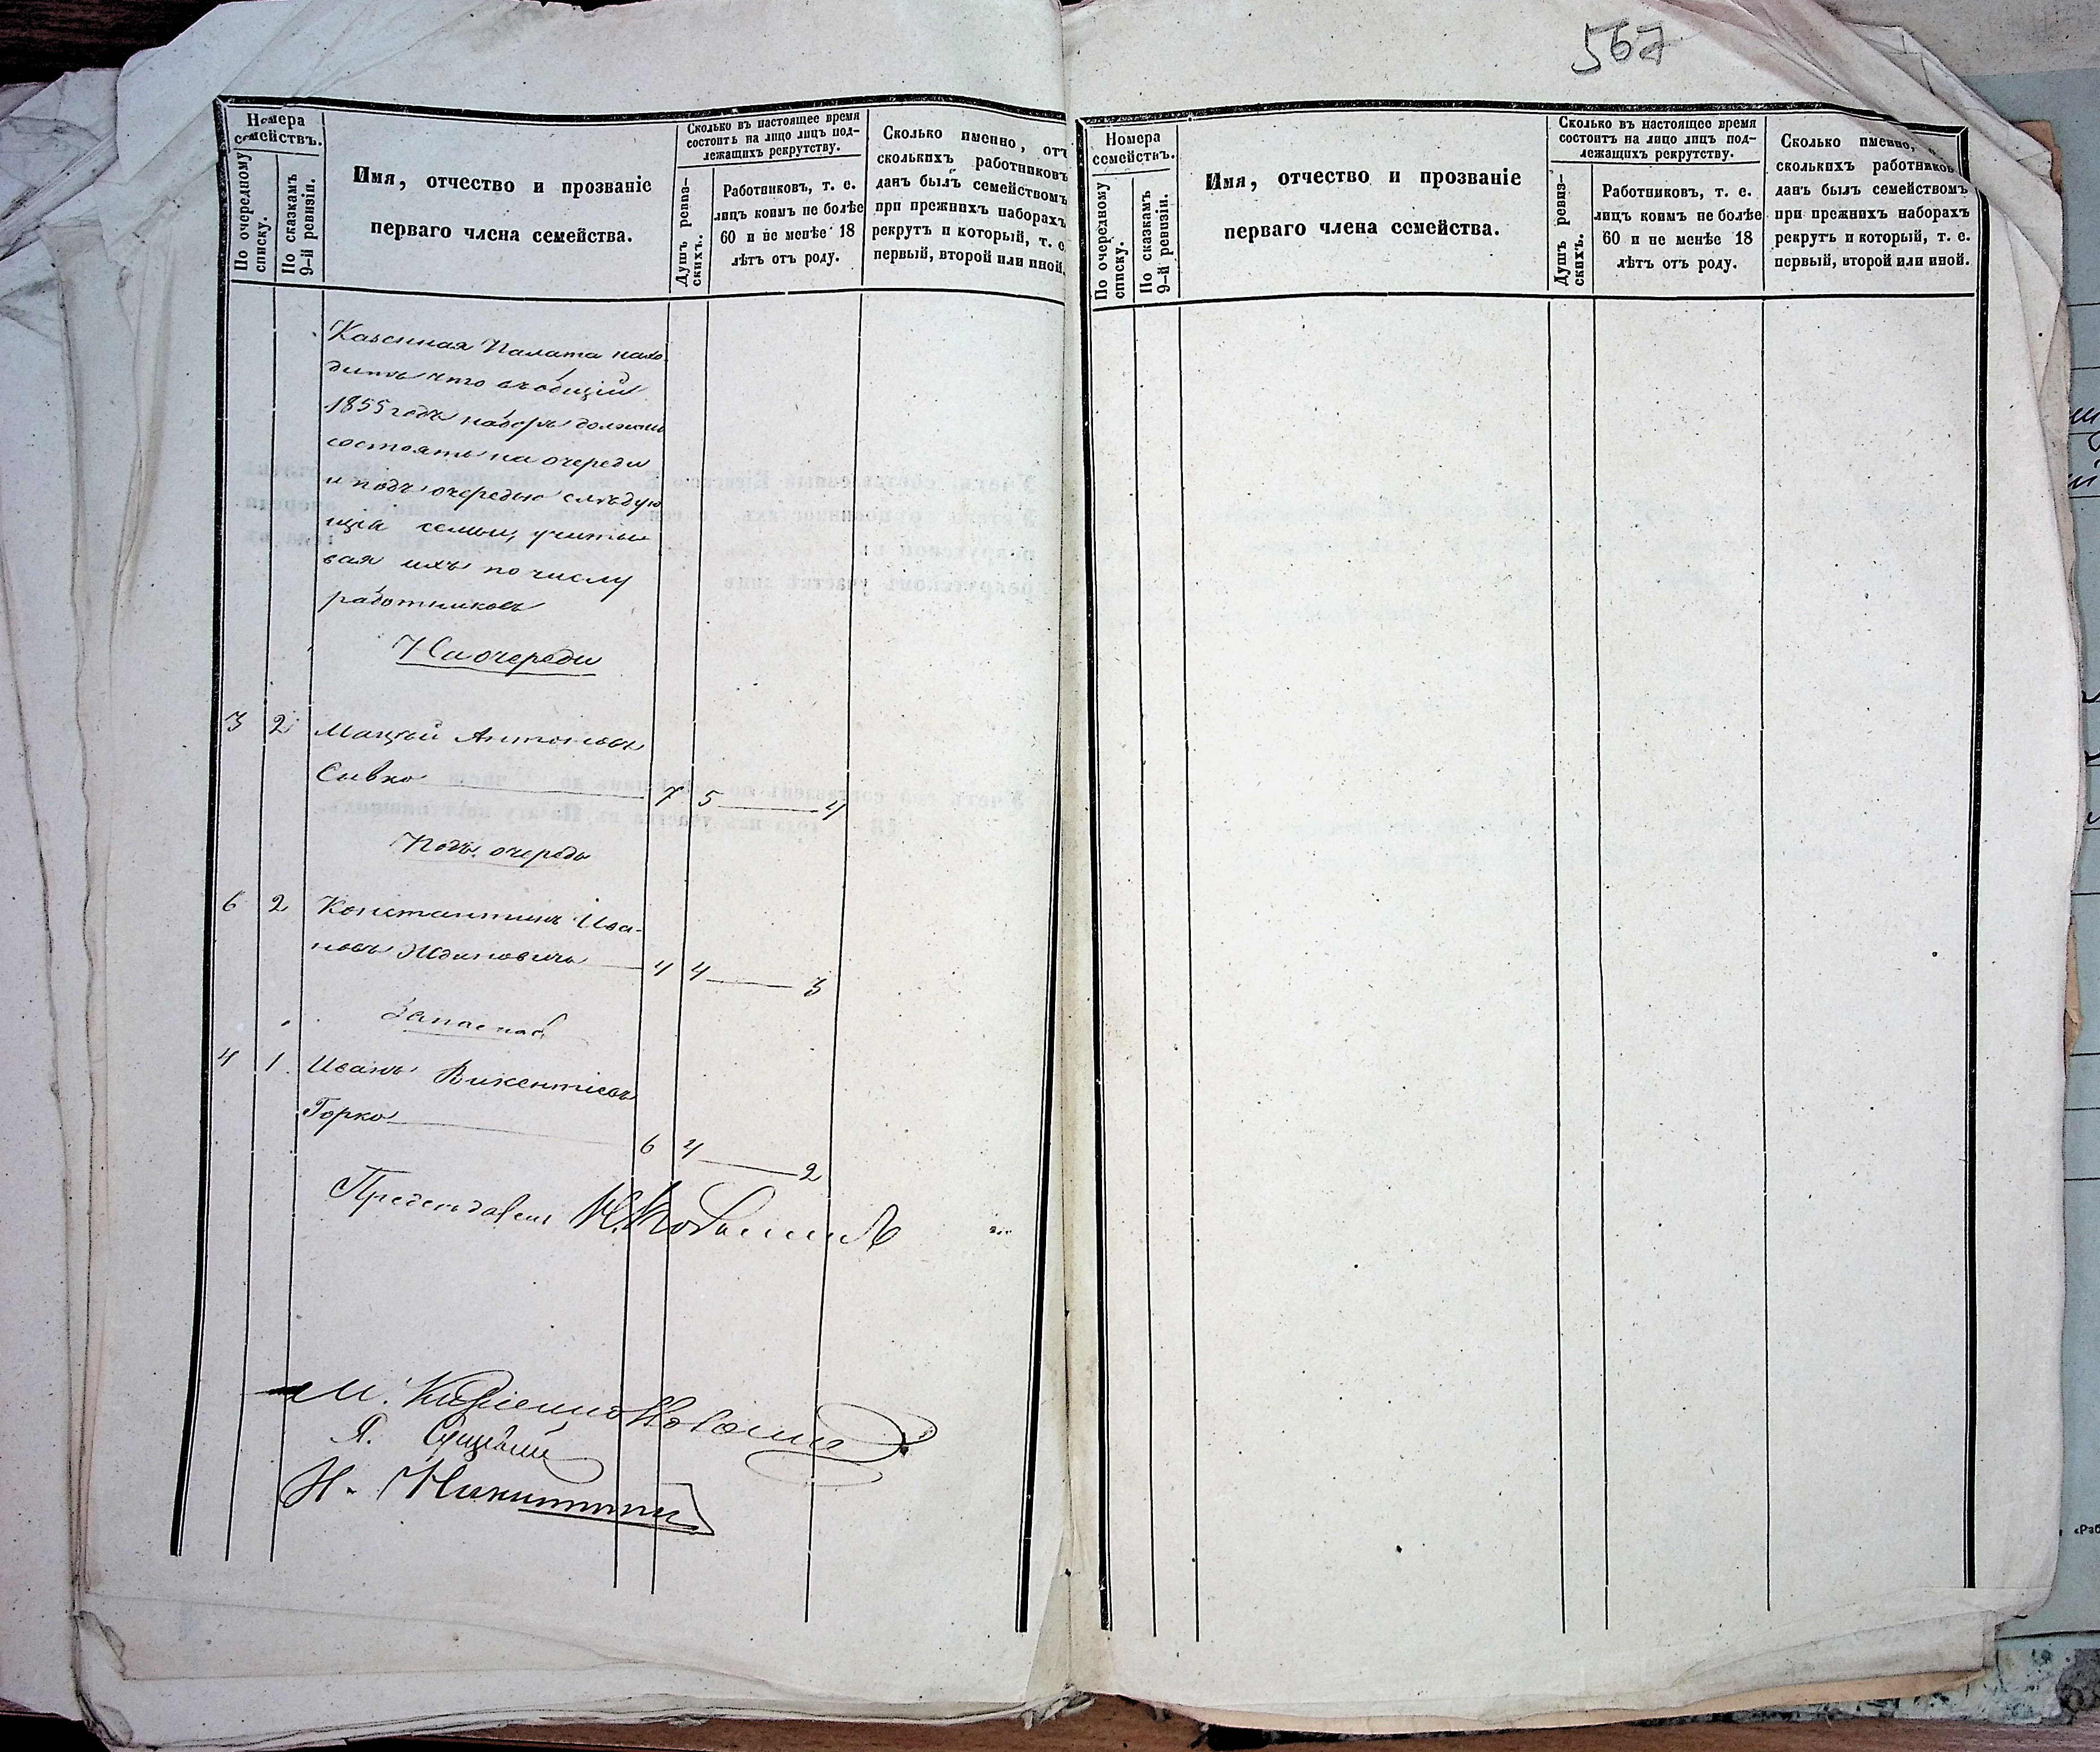 567
Номера
семействъ.
По очередному
списку.
По сказкамъ
9-й ревизіи.
Имя, отчество и прозваніе
перваго члена семейства.
Сколько въ настоящее время
состоитъ на лицо лицъ под-
лежащихъ рекрутству.
Душъ ревиз-
скихъ.
Работниковъ, т. е.
лицъ коимъ не болѣе
60 и не менѣе 18
лѣтъ отъ роду.
Сколько именно, отъ
сколькихъ работниковъ
данъ былъ семействомъ
при прежнихъ наборахъ
рекрутъ и который, т. е.
первый, второй или иной.
Казенная Палата нахо-
дитъ что въ общій
1855 годъ наборъ должны
состоять на очереди
и подъ очередью слѣдую
щія семьи, учиты
вая ихъ по числу
работниковъ
На очереди
3 2 Мацѣй Антоновъ
Сывко 7 5 4
Подъ очередь
6 2 Константинъ Ива-
новъ Ждановичъ 4 4 3
4 1 Иванъ Викентіевъ
Горко 6 4 2
Предсѣдатель
М.
Я.
Н. Никитинъ
Номера
семействъ.
По очередному
списку.
По сказкамъ
9-й ревизіи.
Имя, отчество и прозваніе
перваго члена семейства.
Сколько въ настоящее время
состоитъ на лицо лицъ под-
лежащихъ рекрутству.
Душъ ревиз-
скихъ.
Работниковъ, т. е.
лицъ коимъ не болѣе
60 и не менѣе 18
лѣтъ отъ роду.
Сколько именно,
сколькихъ работников
данъ былъ семействомъ
при прежнихъ наборахъ
рекрутъ и который, т. е.
первый, второй или иной.